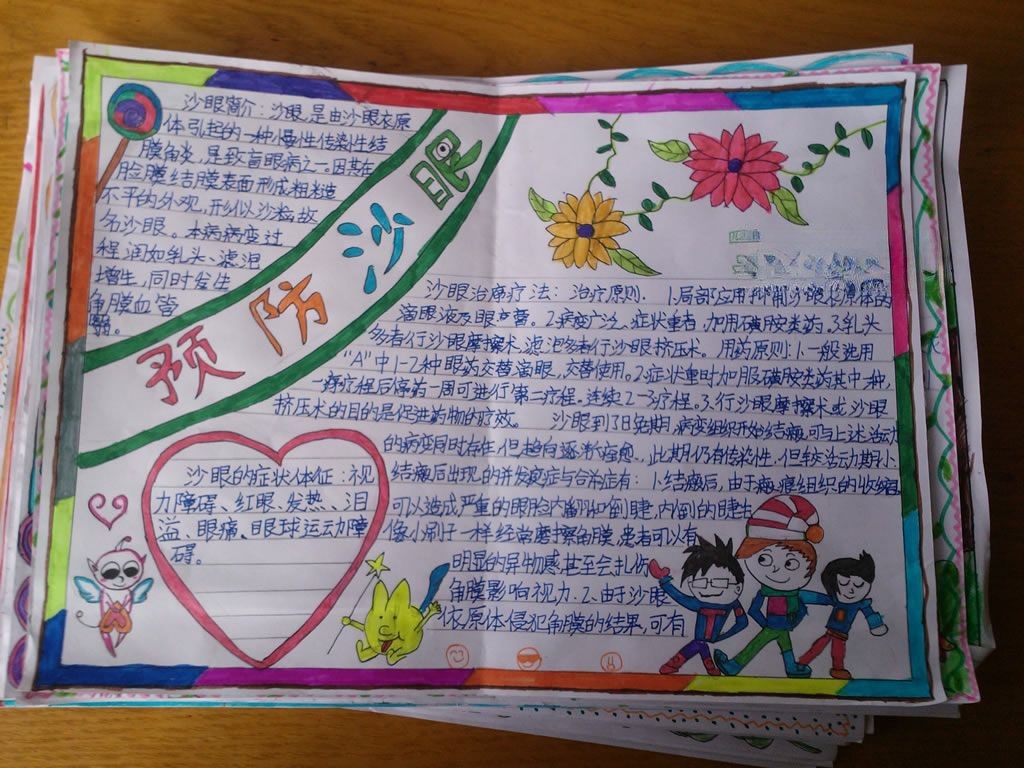 预防沙眼
沙眼简介：沙眼是由沙眼衣原
体引起的一种慢性传染性结
膜角炎，是致盲眼病之一。因其在
睑膜结膜表面形成粗糙
不平的外观，形似沙粒，故
名沙眼。本病病变过
程润如乳头、滤泡
增生，同时发生
角膜血管
翳。
沙眼治疗法：治疗原则．1.局部应用抑制沙眼衣原体的
滴眼液及眼药膏。2.病变广泛、症状重者，加用磺胺类药。3.乳头
多者行沙眼摩擦术，滤泡多者行沙眼挤压术。用药原则：1.一般选用
“A”中1-2种眼药交替滴眼，交替使用。2.症状重时加服磺胺类药其中一种，
一疗程后停药一周可进行第二疗程。连续2-3疗程。3.行沙眼摩擦术或沙眼
挤压术的目的是促进药物的疗效。 沙眼到了日免期，病变组织开始结瘢，可与上述活动
的病变同时存在，但趋向逐渐痊愈．此期仍有传染性，但较活动期小
结瘢后出现的并发症与合症有：1.结瘢后，由于瘢痕组织的收缩
可以造成严重的眼脸内翻和倒睫，内倒的睫毛
像小刷子一样经常摩擦角膜，患者可以有
明显的异物感，甚至会扎伤
角膜影响视力．2、由于沙眼
依原体侵犯角膜的结果，可有
沙眼的症状体征：视
力障碍、红眼、发热、泪
溢、眼痛、眼球运动障
碍。